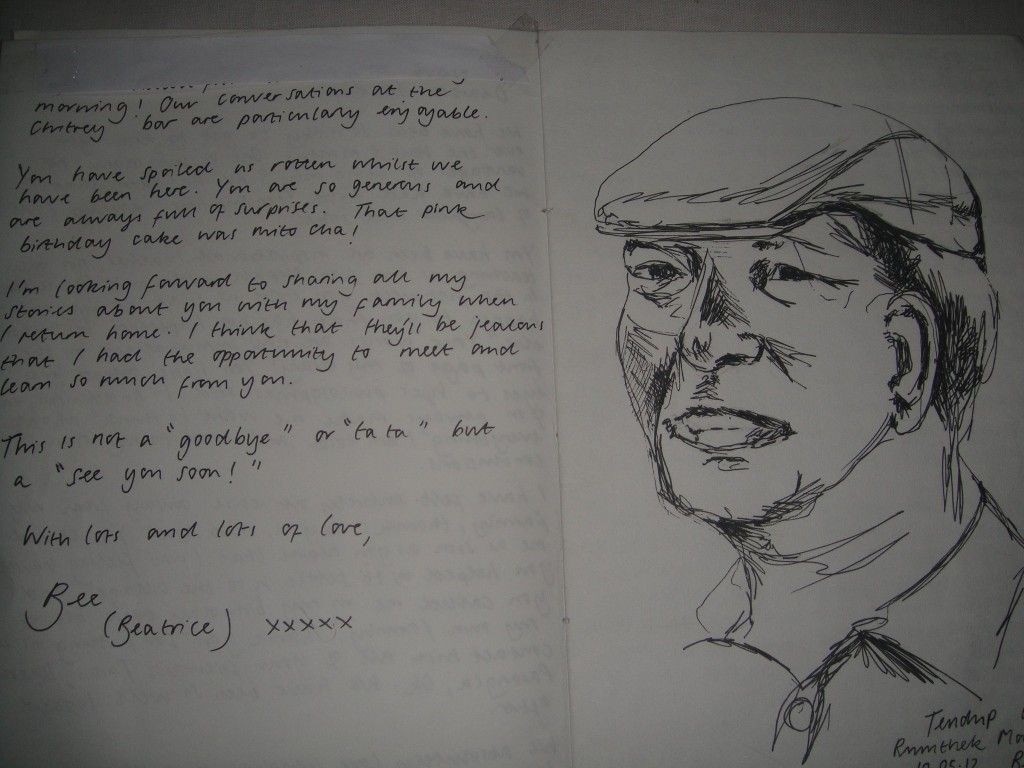 morning! Our conversations at the
Chitrey bar are particularly enjoyable.
You have spoiled us rotten whilst we
have been here. You are so generous and
are always full of surprises. That pink
birthday cake was mito cha!
I'm looking forward to sharing all my
stories about you with my family when
I return home. I think that they'll be jealous
that I had the opportunity to meet and
learn so much from you.
This is not a "goodbye" or "ta ta" but
a "see you soon!"
With lots and lots of love,
Bee
(Beatrice) xxxxx
Tendup
Rumthek Mo